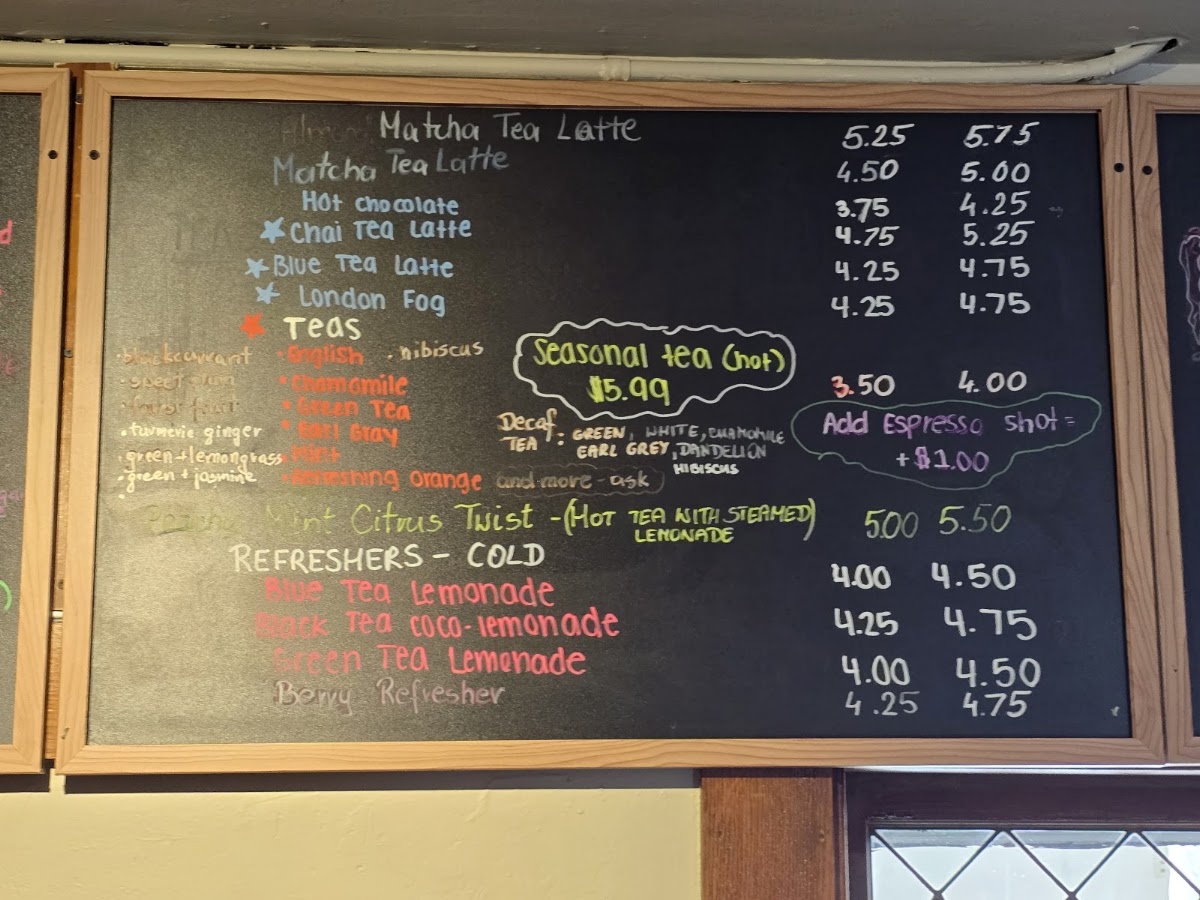 Almond Matcha Tea Latte 5.25 5.75
Matcha Tea Latte 4.50 5.00
Hot chocolate 3.75 4.25
Chai Tea Latte 4.75 5.25
Blue Tea Latte 4.25 4.75
London Fog 4.25 4.75
Teas
• blackcurrant • English • hibiscus
• sweet plum • Chamomile
• forest fruit • Green Tea
• turmeric ginger • Earl Gray
• green + lemongrass • Mint
• green + jasmine • Refreshing orange and more - ask
Seasonal tea (hot)
$5.99
3.50 4.00
Decaf TEA: GREEN, WHITE, CHAMOMILE
EARL GREY, DANDELION
HIBISCUS
Add Espresso shot =
+ $1.00
Mint Citrus Twist - (HOT TEA WITH STEAMED LEMONADE) 5.00 5.50
REFRESHERS - COLD
Blue Tea Lemonade 4.00 4.50
Black Tea coco-lemonade 4.25 4.75
Green Tea Lemonade 4.00 4.50
Berry Refresher 4.25 4.75